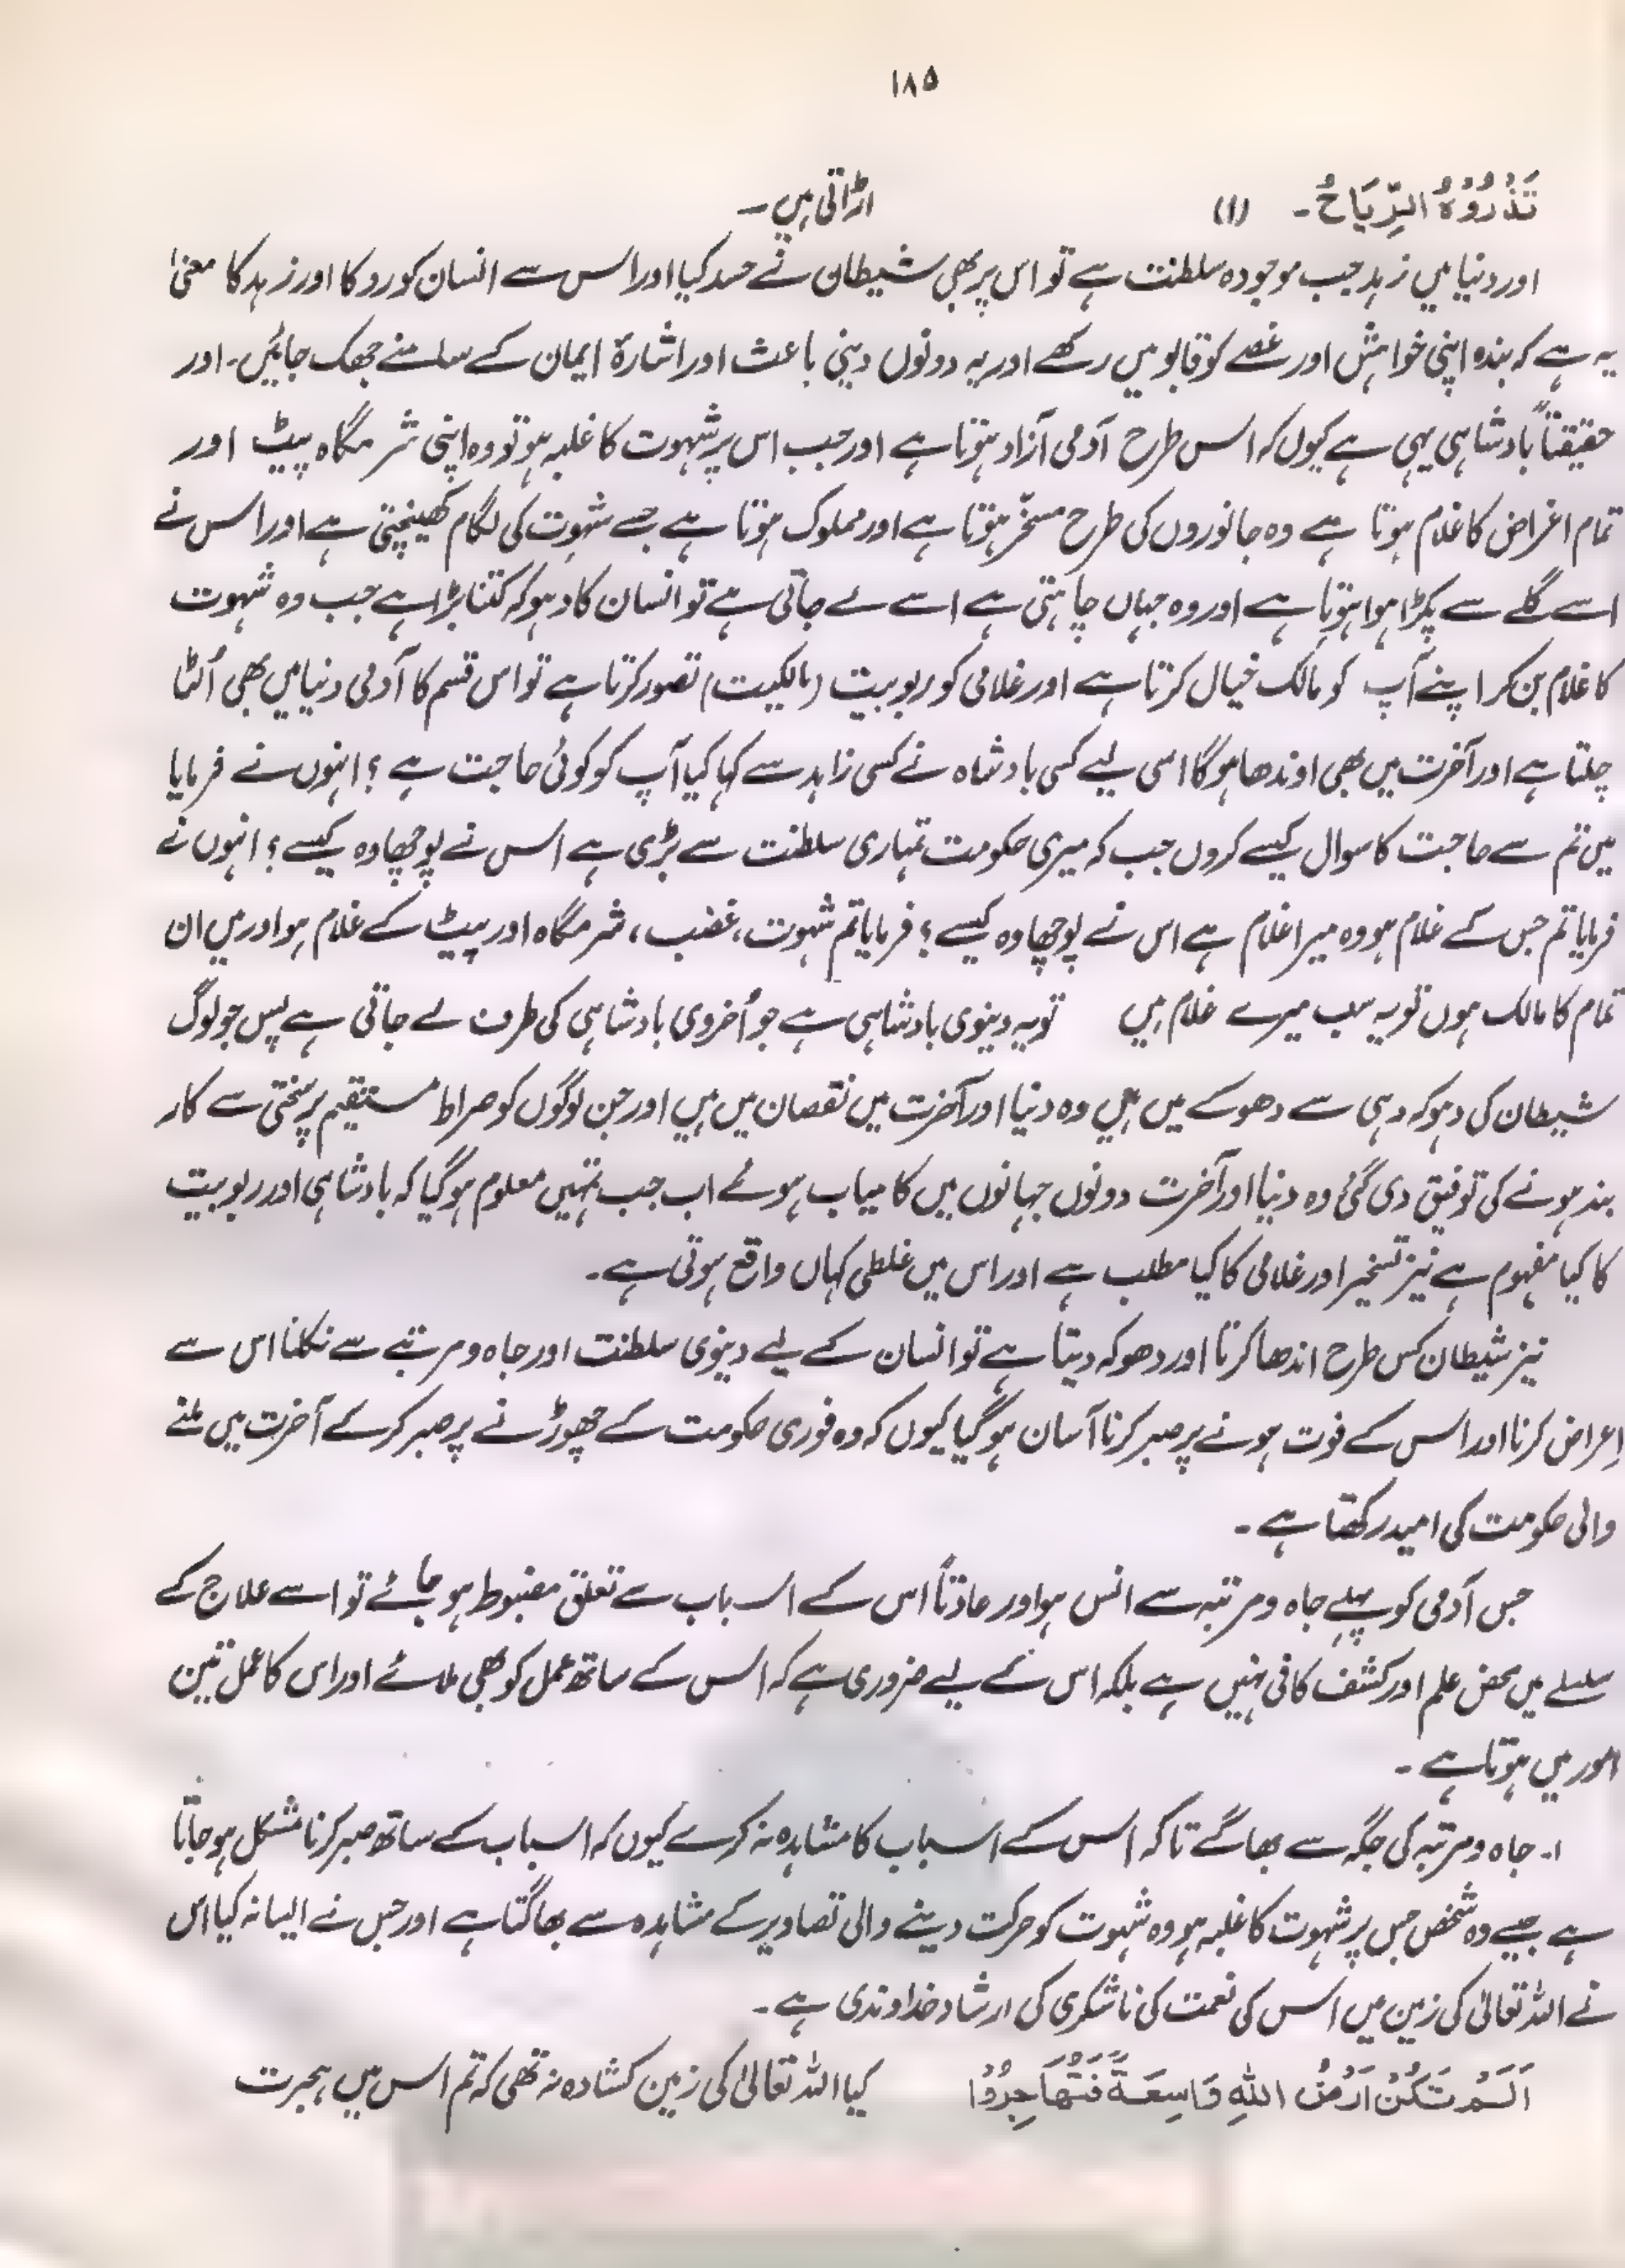 ۱۸۵
تَذْرُوْهُ الرِّيَاحُ۔ (۱) اڑاتی ہیں۔
اور دنیا میں زہد جب موجودہ سلطنت ہے تو اس پر بھی شیطان نے حسد کیا اور اس سے انسان کو روکا اور زہد کا معنیٰ
یہ ہے کہ بندہ اپنی خواہش اور غصے کو قابو میں رکھے اور یہ دونوں دینی باعث اور اشارۂ ایمان کے سامنے جھک جائیں۔ اور
حقیقتاً بادشاہی یہی ہے کیوں کہ اس طرح آدمی آزاد ہوتا ہے اور جب اس پر شہوت کا غلبہ ہو تو وہ اپنی شرمگاہ پیٹ اور
تمام اغراض کا غلام ہوتا ہے وہ جانوروں کی طرح مسخّر ہوتا ہے اور مملوک ہوتا ہے جسے شہوت کی لگام کھینچتی ہے اور اس نے
اسے گلے سے پکڑا ہوا ہوتا ہے اور وہ جہاں چاہتی ہے اسے لے جاتی ہے تو انسان کا دہوکہ کتنا بڑا ہے جب وہ شہوت
کا غلام بن کر اپنے آپ کو مالک خیال کرتا ہے اور غلامی کو ربوبیت (مالکیت) تصور کرتا ہے تو اس قسم کا آدمی دنیا میں بھی اُلٹا
چلتا ہے اور آخرت میں بھی اوندھا ہوگا اسی لیے کسی بادشاہ نے کسی زاہد سے کہا کیا آپ کو کوئی حاجت ہے؟ انہوں نے فرمایا
میں تم سے حاجت کا سوال کیسے کروں جب کہ میری حکومت تمہاری سلطنت سے بڑی ہے اس نے پوچھا وہ کیسے؟ انہوں نے
فرمایا تم جس کے غلام ہو وہ میرا غلام ہے اس نے پوچھا وہ کیسے؟ فرمایا تم شہوت، غضب، شرمگاہ اور پیٹ کے غلام ہو اور میں ان
تمام کا مالک ہوں تو یہ سب میرے غلام ہیں تو یہ دینوی بادشاہی ہے جو اُخروی بادشاہی کی طرف لے جاتی ہے پس جو لوگ
شیطان کی دہوکہ دہی سے دھوکے میں ہیں وہ دنیا اور آخرت میں نقصان میں ہیں اور جن لوگوں کو صراط مستقیم پر سختی سے کار
بند ہونے کی توفیق دی گئی وہ دنیا اور آخرت دونوں جہانوں میں کامیاب ہوئے اب جب تمہیں معلوم ہوگیا کہ بادشاہی اور ربوبیت
کا کیا مفہوم ہے نیز تسخیر اور غلامی کا کیا مطلب ہے اور اس میں غلطی کہاں واقع ہوتی ہے۔
نیز شیطان کس طرح اندھا کرتا اور دھوکہ دیتا ہے تو انسان کے لیے دینوی سلطنت اور جاہ و مرتبے سے نکلنا اس سے
اِعراض کرنا اور اس کے فوت ہونے پر صبر کرنا آسان ہوگیا کیوں کہ وہ فوری حکومت کے چھوڑنے پر صبر کر کے آخرت میں ملنے
والی حکومت کی امید رکھتا ہے۔
جس آدمی کو پہلے جاہ و مرتبہ سے انس ہو اور عادتاً اس کے اسباب سے تعلق مضبوط ہو جائے تو اسے علاج کے
سلسلے میں محض علم اور کشف کافی نہیں ہے بلکہ اس کے لیے ضروری ہے کہ اس کے ساتھ عمل کو بھی ملائے اور اس کا عمل تین
امور میں ہوتا ہے۔
۱۔ جاہ و مرتبہ کی جگہ سے بھاگے تاکہ اس کے اسباب کا مشاہدہ نہ کرے کیوں کہ اسباب کے ساتھ صبر کرنا مشکل ہو جاتا
ہے جیسے وہ شخص جس پر شہوت کا غلبہ ہو وہ شہوت کو حرکت دینے والی تصاویر کے مشاہدہ سے بھاگتا ہے اور جس نے ایسا نہ کیا اس
نے اللہ تعالیٰ کی زمین میں اس کی نعمت کی ناشکری کی ارشاد خداوندی ہے۔
اَلَمْ تَكُنْ اَرْضُ اللهِ وَاسِعَةً فَتُهَاجِرُوْا کیا اللہ تعالیٰ کی زمین کشادہ نہ تھی کہ تم اس میں ہجرت